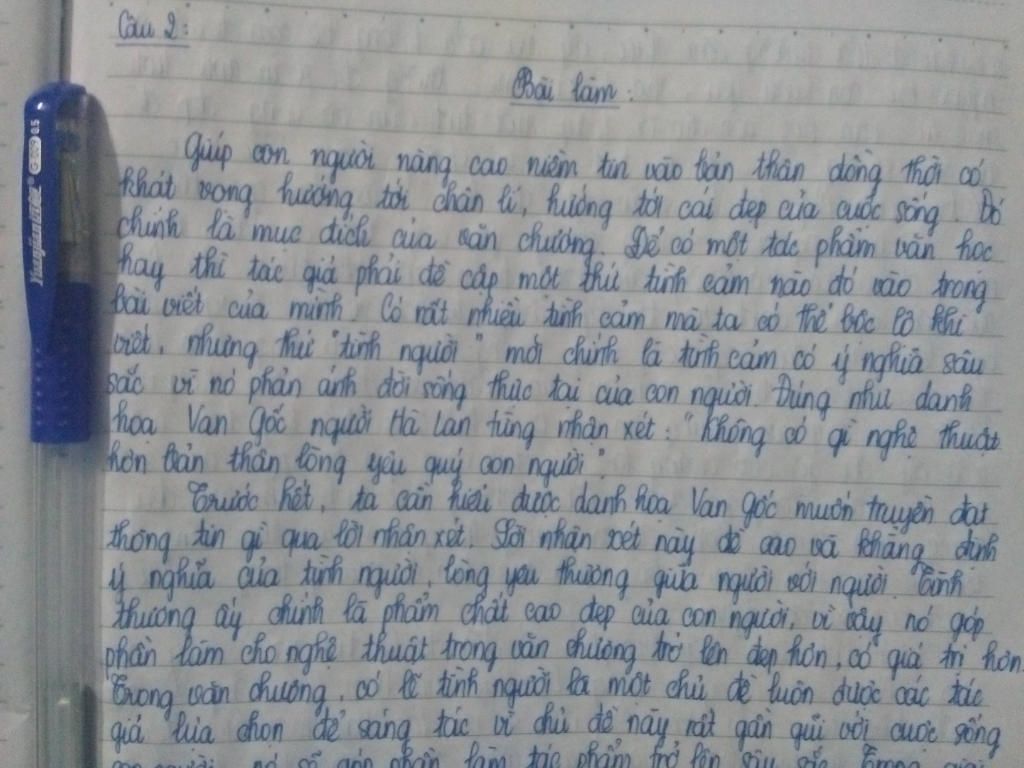 Câu 2:
Bài làm:
Giúp con người nâng cao niềm tin vào bản thân đồng thời có
khát vọng hướng tới chân lí, hướng tới cái đẹp của cuộc sống. Đó
chính là mục đích của văn chương. Để có một tác phẩm văn học
hay thì tác giả phải đề cập một thứ tình cảm nào đó vào trong
bài viết của mình. Có rất nhiều tình cảm mà ta có thể bộc lộ khi
viết, nhưng thứ "tình người" mới chính là tình cảm có ý nghĩa sâu
sắc vì nó phản ánh đời sống thực tại của con người. Đúng như danh
họa Van Gốc người Hà Lan từng nhận xét: "Không có gì nghệ thuật
hơn bản thân lòng yêu quý con người"
Trước hết, ta cần hiểu được danh họa Van Gốc muốn truyền đạt
thông tin gì qua lời nhận xét. Lời nhận xét này đề cao và khẳng định
ý nghĩa của tình người, lòng yêu thương giữa người với người. Tình
thương ấy chính là phẩm chất cao đẹp của con người, vì vậy nó góp
phần làm cho nghệ thuật trong văn chương trở lên đẹp hơn, có giá trị hơn.
Trong văn chương, có lẽ tình người là một chủ đề luôn được các tác
giả lựa chọn để sáng tác vì chủ đề này rất gần gũi với cuộc sống
con người, nó sẽ góp phần làm tác phẩm trở lên sâu sắc. Trong
0.5